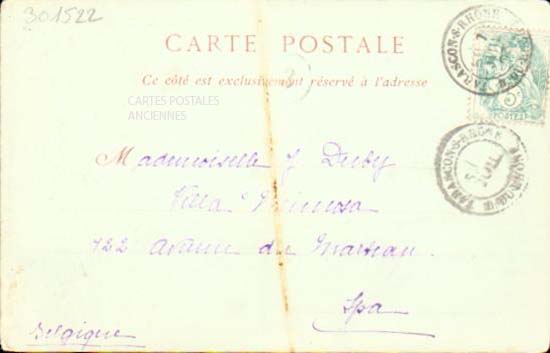 301522
CARTE POSTALE
Ce côté est exclusivement réservé à l'adresse
CARTES POSTALES
ANCIENNES
TARASCON-S-RHONE
5
POSTES
TARASCON-S-RHONE
Mademoiselle J Derby
Villa Mimosa
122 Avenue du
Spa
Belgique